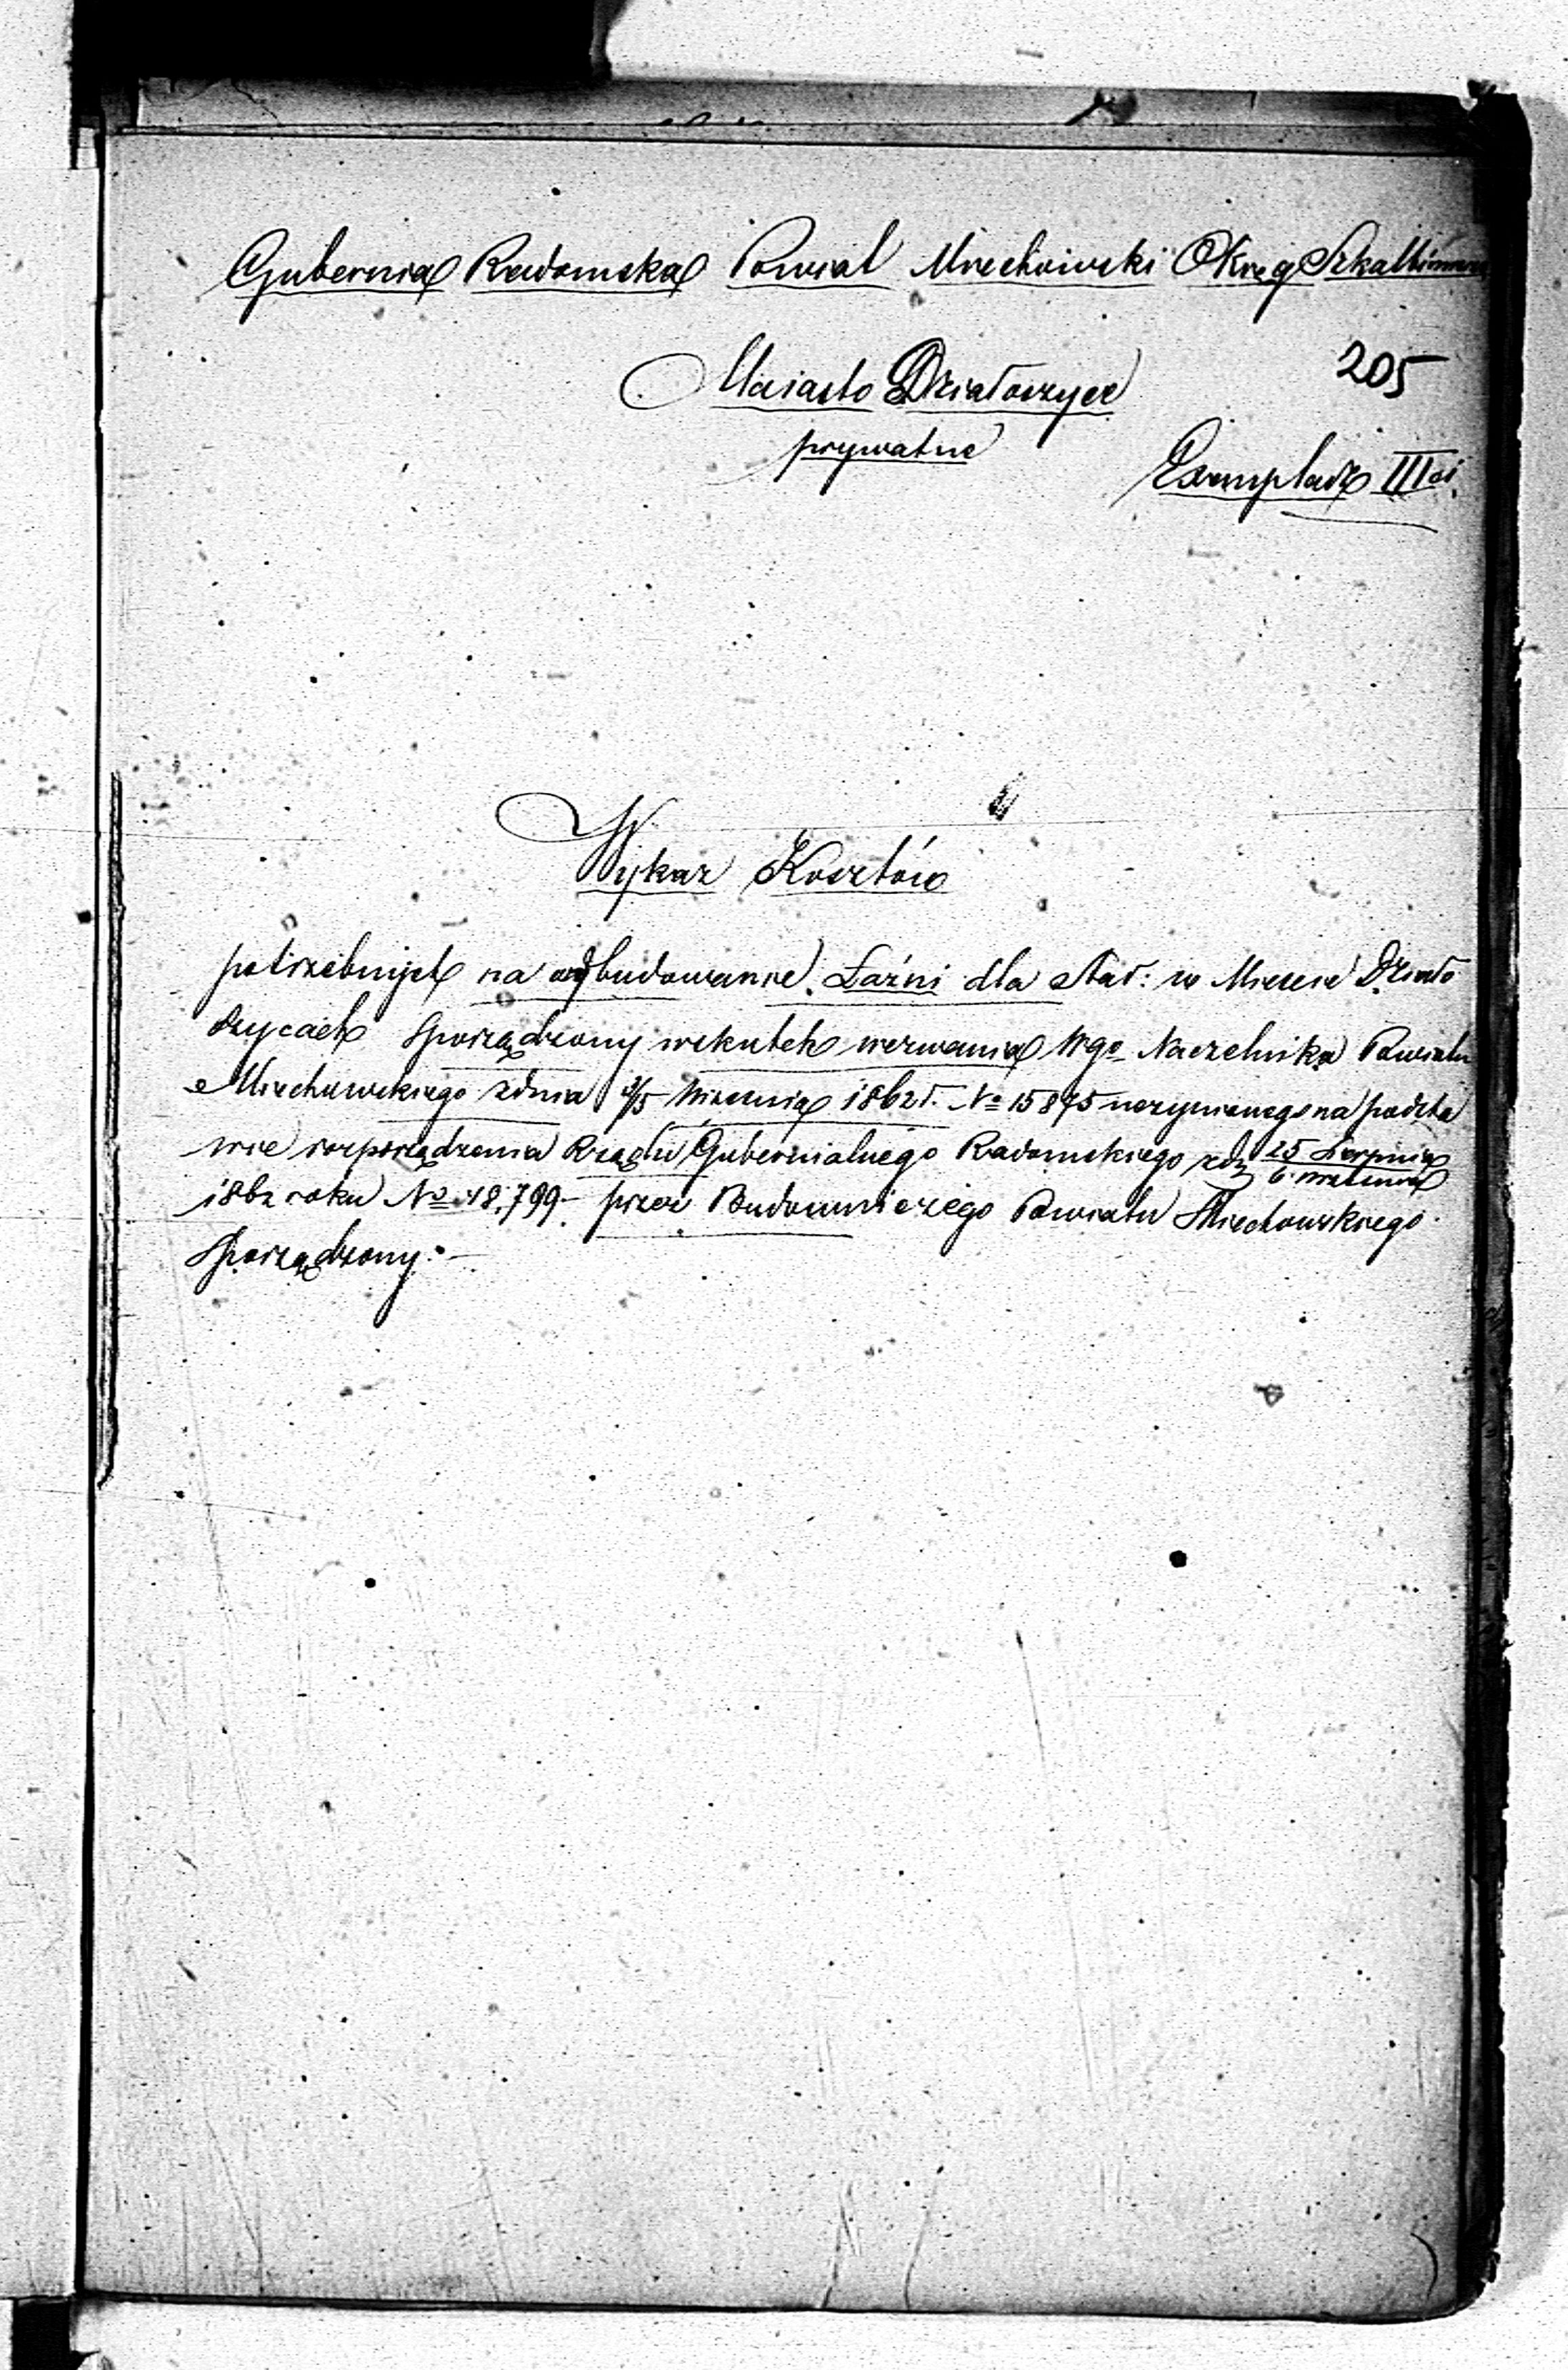 Gubernia Radomska Powiat Miechowski Okręg Szkalbimer
Miasto Działoszyce
205
prywatne
Exemplarz III ci
Wykaz Kosztów
potrzebnych na odbudowanie Łaźni dla Star: w Mieście Dzialo
szycach sporządzony wskutek wezwania Wgo Naczelnika Powiatu
Miechowskiego zdnia 3/5 Września 1862 r. No 15875 uczynionego na podsta
wie rozporządzenia Rządu Gubernialnego Radomskiego zdn 25 Sierpnia
6 Września
1862 roku No 48,799 - przez Budowniczego Powiatu Miechowskiego
Sporządzony.-